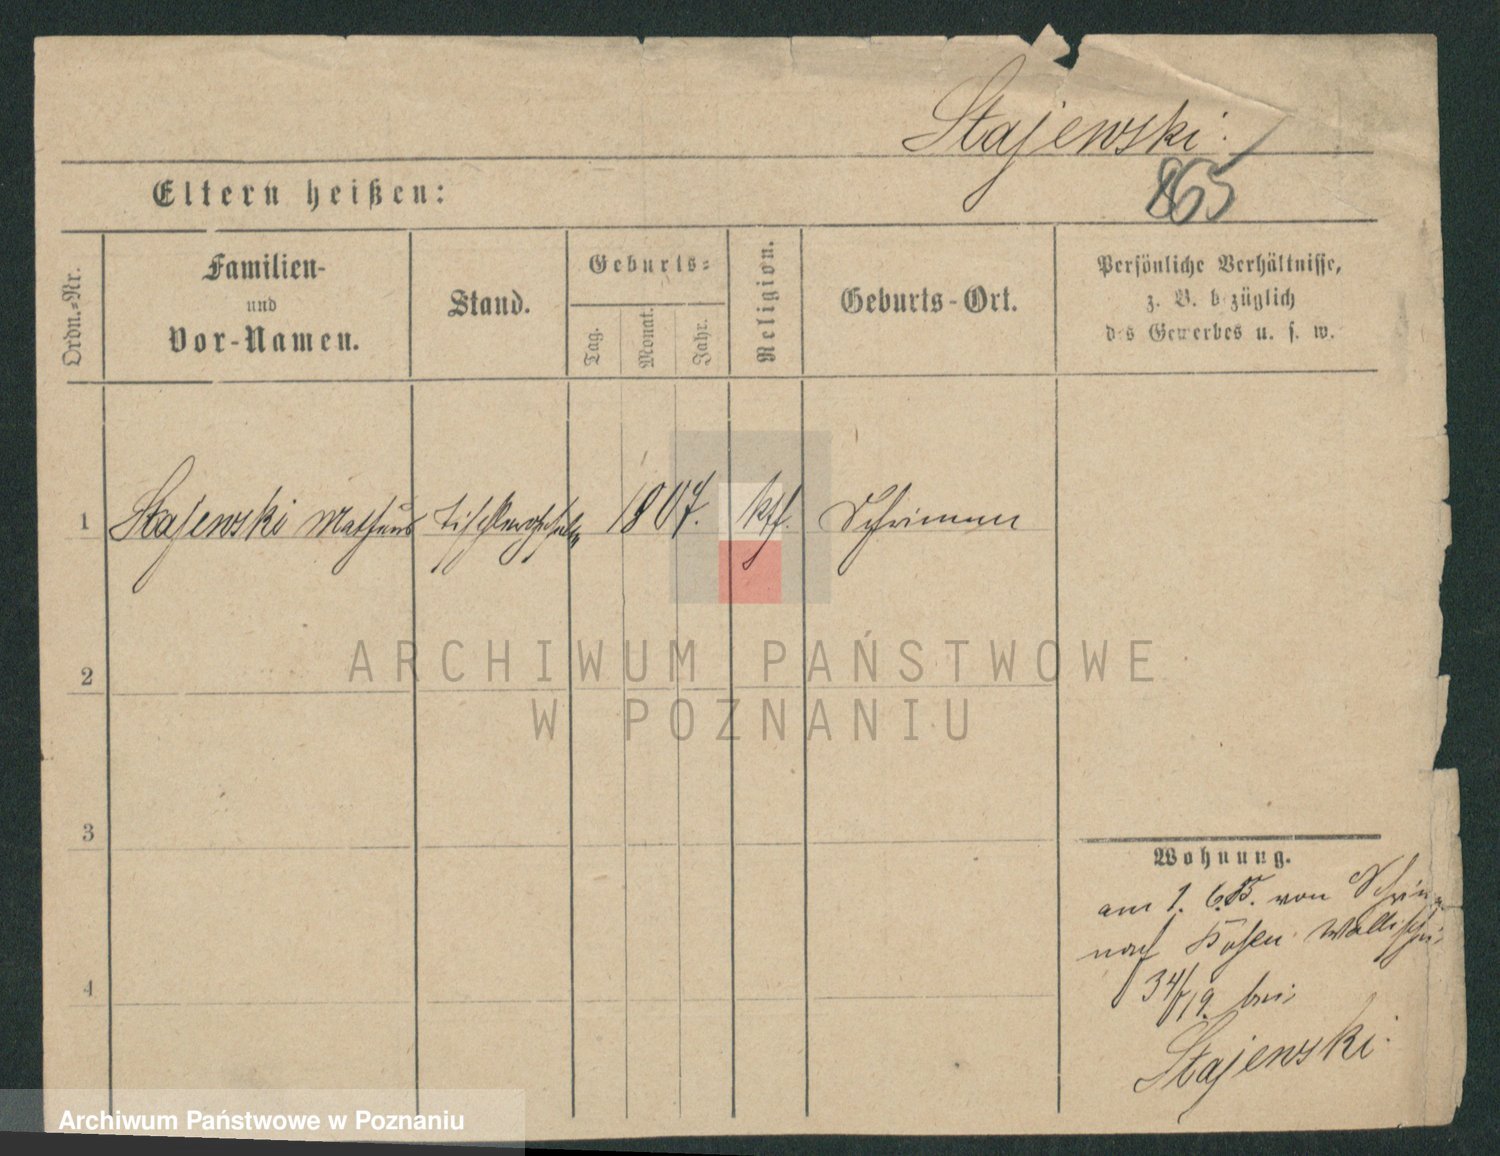 Stajewski.
865
Eltern heißen:
Ordn.-Nr.
Familien-
und
Vor-Namen.
Stand.
Geburts-
Tag.
Monat.
Jahr.
Religion.
Geburts-Ort.
Persönliche Verhältnisse,
z. B. bezüglich
des Gewerbes u. s. w.
1 Stajewski Mathäus 1807. kth. Schrimm
ARCHIWUM PAŃSTWOWE
W POZNANIU
2
3
4
Wohnung.
am 1. 6. von Schrim
nach Posen Wallischei
34/19. bei
Stajewski.
Archiwum Państwowe w Poznaniu